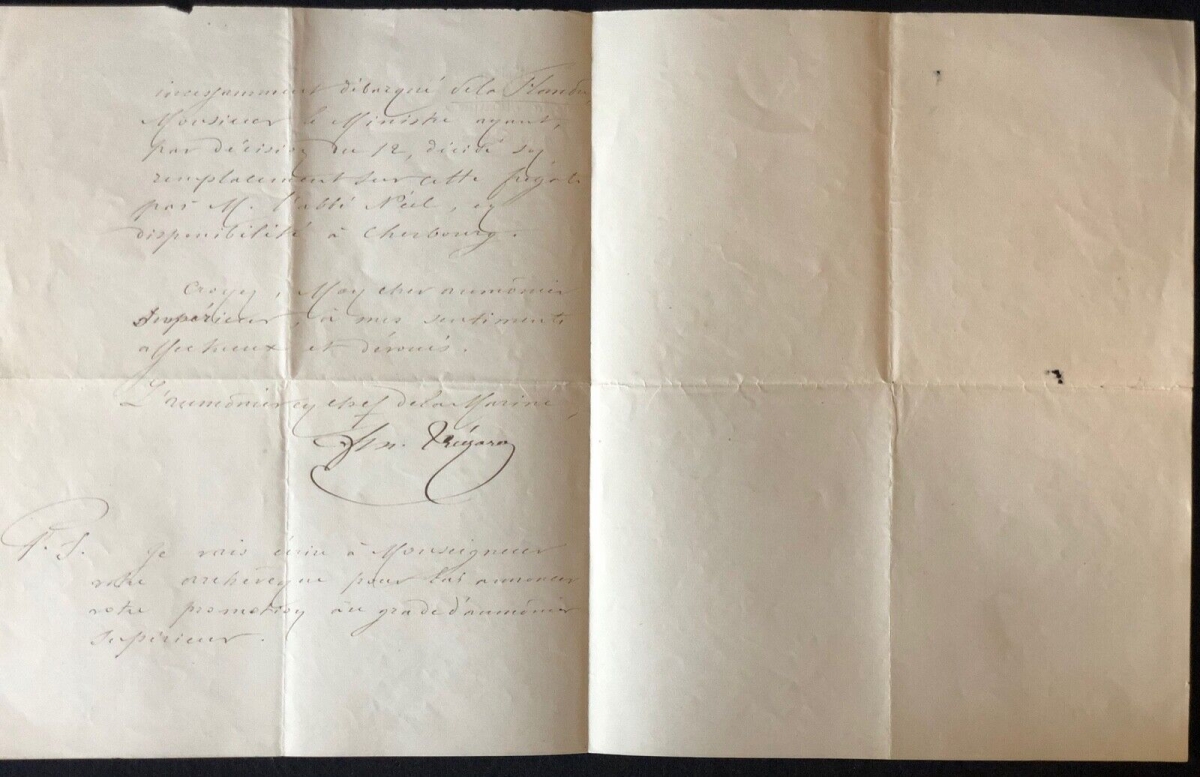 incessamment débarqué de la Flandre,
Monsieur le Ministre ayant,
par décision du 12, décidé son
remplacement sur cette frégate
par M. l'abbé Néel, en
disponibilité à Cherbourg.
Croyez, Mon cher aumônier
Supérieur, à mes sentiments
affectueux et dévoués.
L'aumônier en chef de la Marine,
Trégaro
P. S. Je vais écrire à Monseigneur
votre archevêque pour lui annoncer
votre promotion au grade d'aumônier
supérieur.